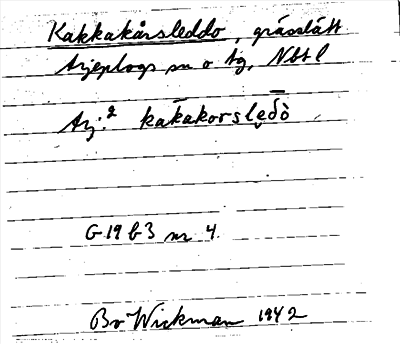 Kakkakårsleddo, grässlått
Arjeplogs sn o tg, Nbtl
Arj.² kakakorslęðò
G 19 b 3 nr 4.
Bo Wickman 1942